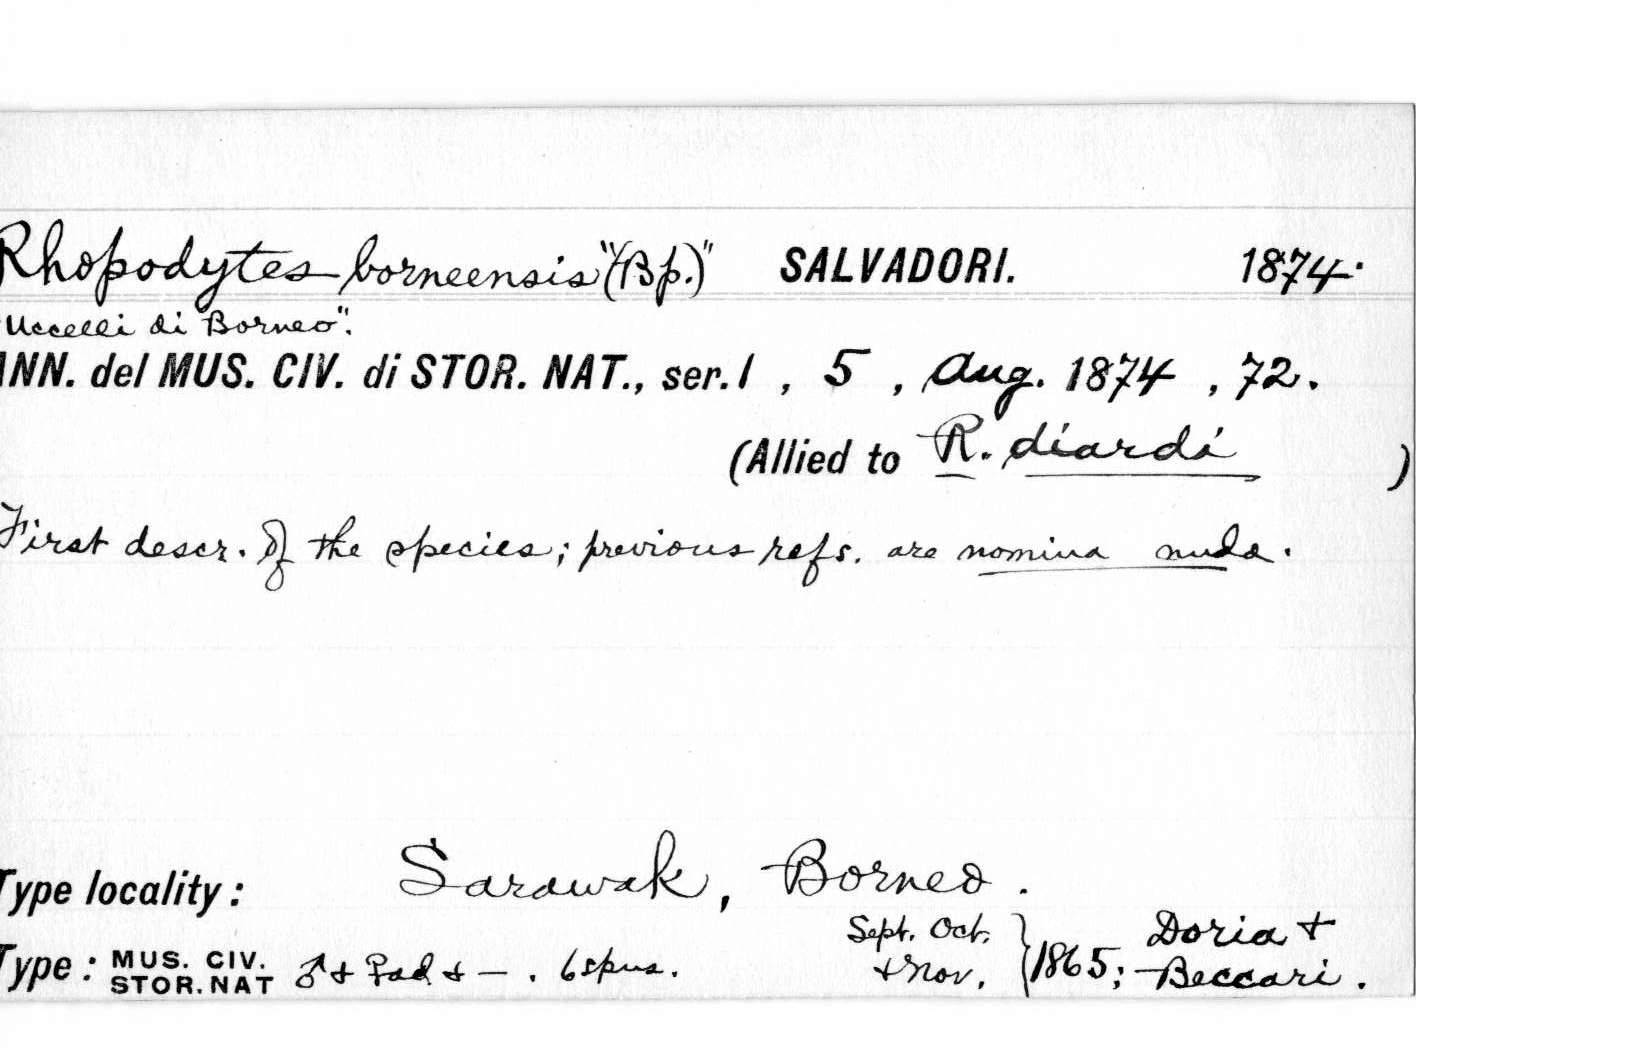 Rhopodytes borneensis "(Bp.)" SALVADORI. 1874.
"Uccelli di Borneo".
ANN. del MUS. CIV. di STOR. NAT., ser. 1 , 5 , Aug. 1874 , 72.
(Allied to R. diardi )
First descr. of the species; previous refs. are nomina nuda.
Type locality : Sarawak, Borneo .
Type : MUS. CIV. STOR. NAT ♂ + ♀ ad + — . 6 spns. Sept. Oct. + Nov. } 1865; Doria + Beccari .